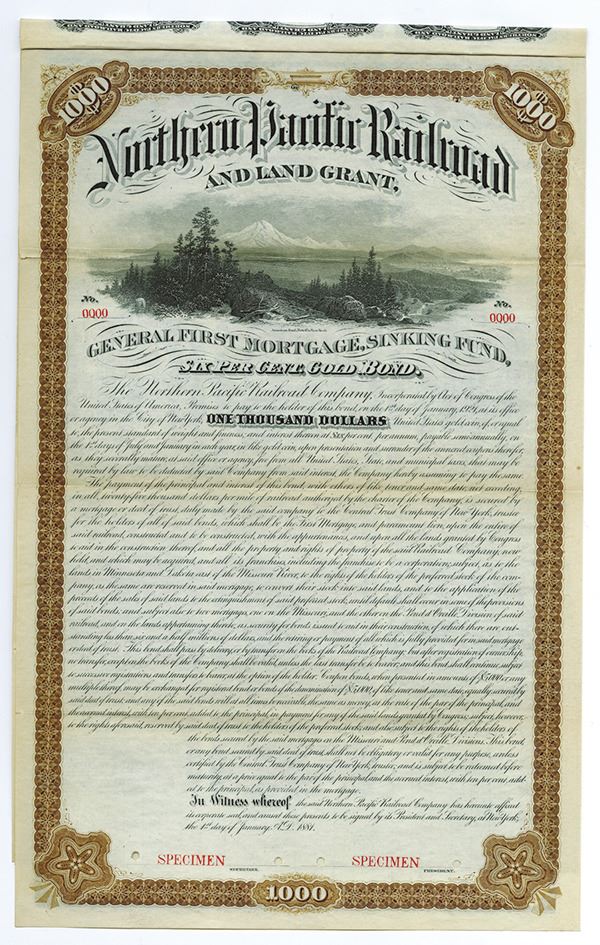 1000
1000
Northern Pacific Railroad
AND LAND GRANT,
No.
0000
No.
0000
GENERAL FIRST MORTGAGE, SINKING FUND,
SIX PER CENT. GOLD BOND.
The Northern Pacific Railroad Company, Incorporated by Act of Congress of the
United States of America, Promises to pay to the holder of this bond, on the 1st day of January, 1921, at its office
or agency in the City of New York, ONE THOUSAND DOLLARS United States gold coin, of, or equal
to, the present standard of weight and fineness, and interest thereon at six per cent. per annum, payable semi-annually, on
the 1st days of July and January in each year, in like gold coin, upon presentation and surrender of the annexed coupons therefor,
as they severally mature, at said office or agency, free from all United States, State, and municipal taxes, that may be
required by law to be deducted by said Company from said interest, the Company hereby assuming to pay the same.
The payment of the principal and interest of this bond, with others of like tenor and same date, not exceeding
in all, twenty-five thousand dollars per mile of railroad authorized by the charter of the Company, is secured by
a mortgage or deed of trust, duly made by the said company to the Central Trust Company of New York, trustee
for the holders of all of said bonds, which shall be the First Mortgage, and paramount lien, upon the entire of
said railroad, constructed and to be constructed, with the appurtenances, and upon all the lands granted by Congress
to aid in the construction thereof, and all the property and rights of property of the said Railroad Company, now
held, and which may be acquired, and all its franchises, including the franchise to be a corporation; subject, as to the
lands in Minnesota and Dakota east of the Missouri River, to the rights of the holders of the preferred stock of the com-
pany, as the same are reserved in said mortgage, to convert their stock into said lands, and to the application of the
proceeds of the sales of said lands to the extinguishment of said preferred stock, until default shall occur in some of the provisions
of said bonds, and subject also to two mortgages, one on the Missouri, and the other on the Pend d'Oreille Division of said
railroad, and on the lands appertaining thereto, as security for bonds issued to aid in their construction, of which there are out-
standing less than six and a half millions of dollars, and the retiring or payment of all which is fully provided for in said mortgage
or deed of trust. This bond shall pass by delivery, or by transfer on the books of the Railroad Company; but after registration of ownership
no transfer, except on the books of the Company shall be valid, unless the last transfer be to bearer; and this bond shall continue subject
to successive registrations and transfers to bearer, at the option of the holder. Coupon bonds, when presented in amounts of $5000 or any
multiple thereof, may be exchanged for registered bond or bonds of the denomination of $5000, of like tenor and same date, equally secured by
said deed of trust; and any of the said bonds will at all times be receivable, the same as money, at the rate of the par of the principal, and
the accrued interest, with ten per cent. added to the principal, in payment for any of the said lands granted by Congress; subject, however,
to the rights aforesaid, reserved by said deed of trust to the holders of the preferred stock, and also subject to the rights of the holders of
the bonds secured by the said mortgages on the Missouri and Pend d'Oreille Divisions. This bond,
or any bond secured by said deed of trust, shall not be obligatory or valid for any purpose, unless
certified by the Central Trust Company of New York, trustee, and is subject to be retired before
maturity, at a price equal to the par of the principal, and the accrued interest, with ten per cent. add-
ed to the principal, as provided in the mortgage.
In Witness whereof the said Northern Pacific Railroad Company has hereunto affixed
its corporate seal, and caused these presents to be signed by its President and Secretary, at New York,
the 1st day of January, A.D. 1881.
SPECIMEN
SPECIMEN
SECRETARY.
PRESIDENT.
1000